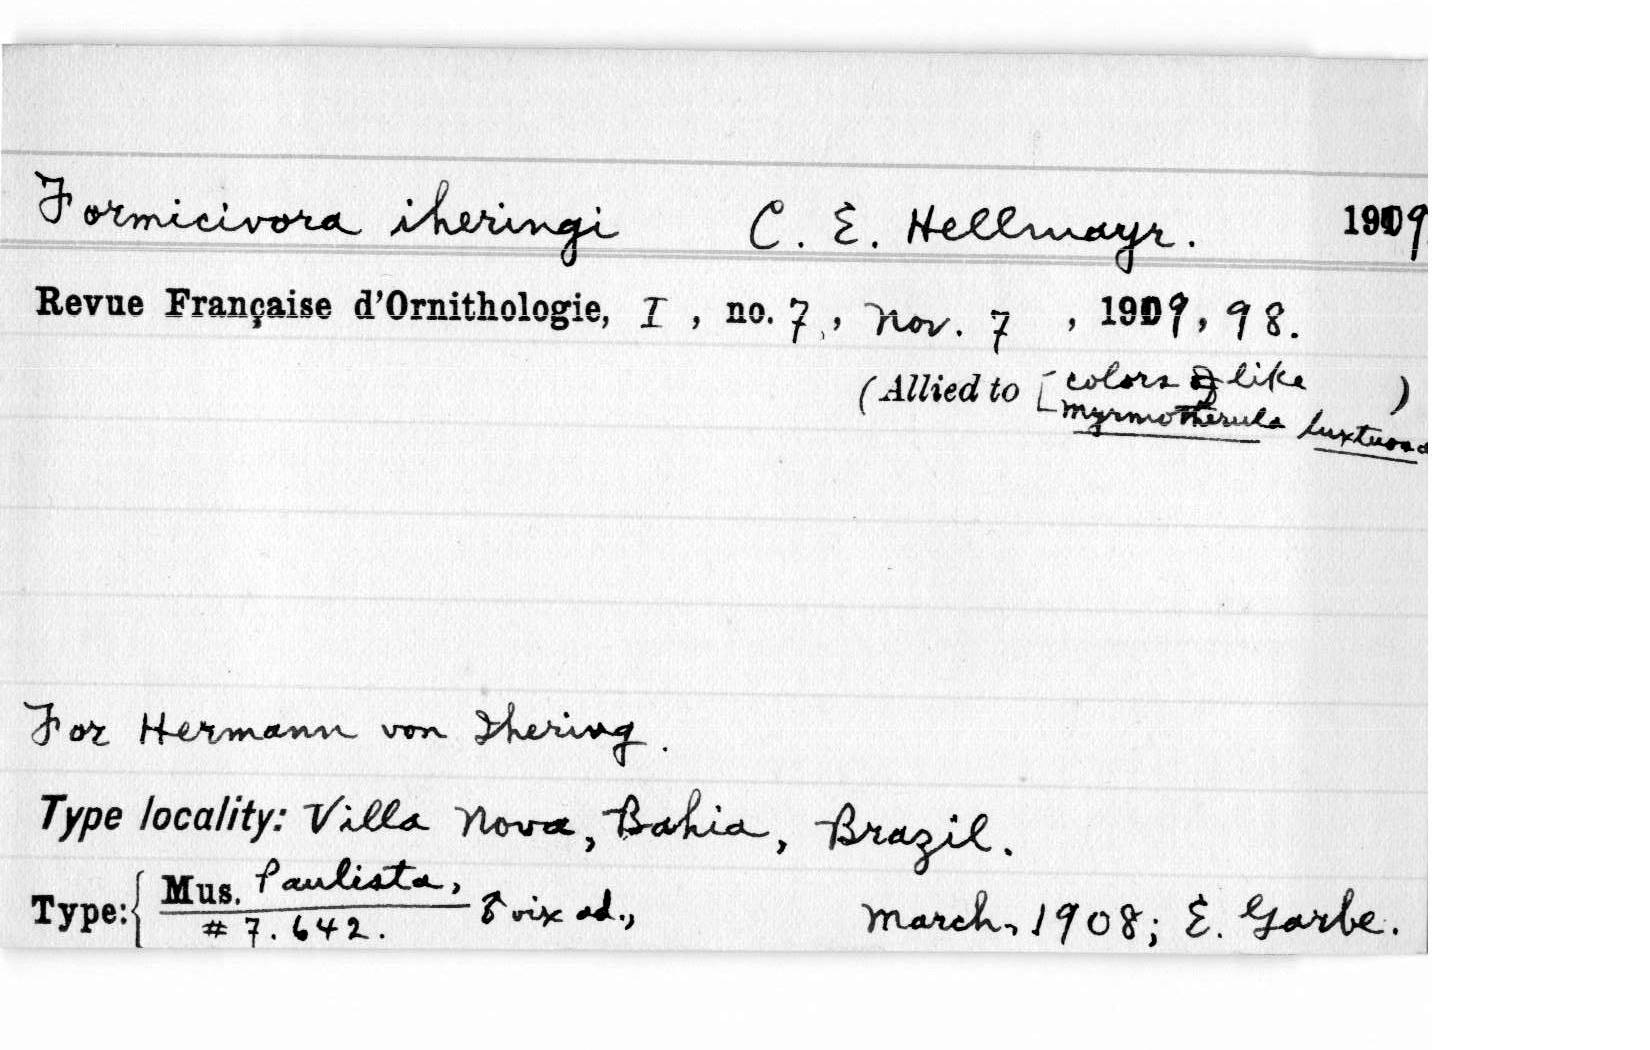 Formicivora iheringi C. E. Hellmayr. 1909
Revue Française d'Ornithologie, I, no. 7, Nov. 7, 1909, 98.
(Allied to [colors of like )
Myrmotherula luxtuosa
For Hermann von Ihering.
Type locality: Villa Nova, Bahia, Brazil.
Type: { Mus. Paulista, ♂ vix ad., March, 1908; E. Garbe.
# 7.642.